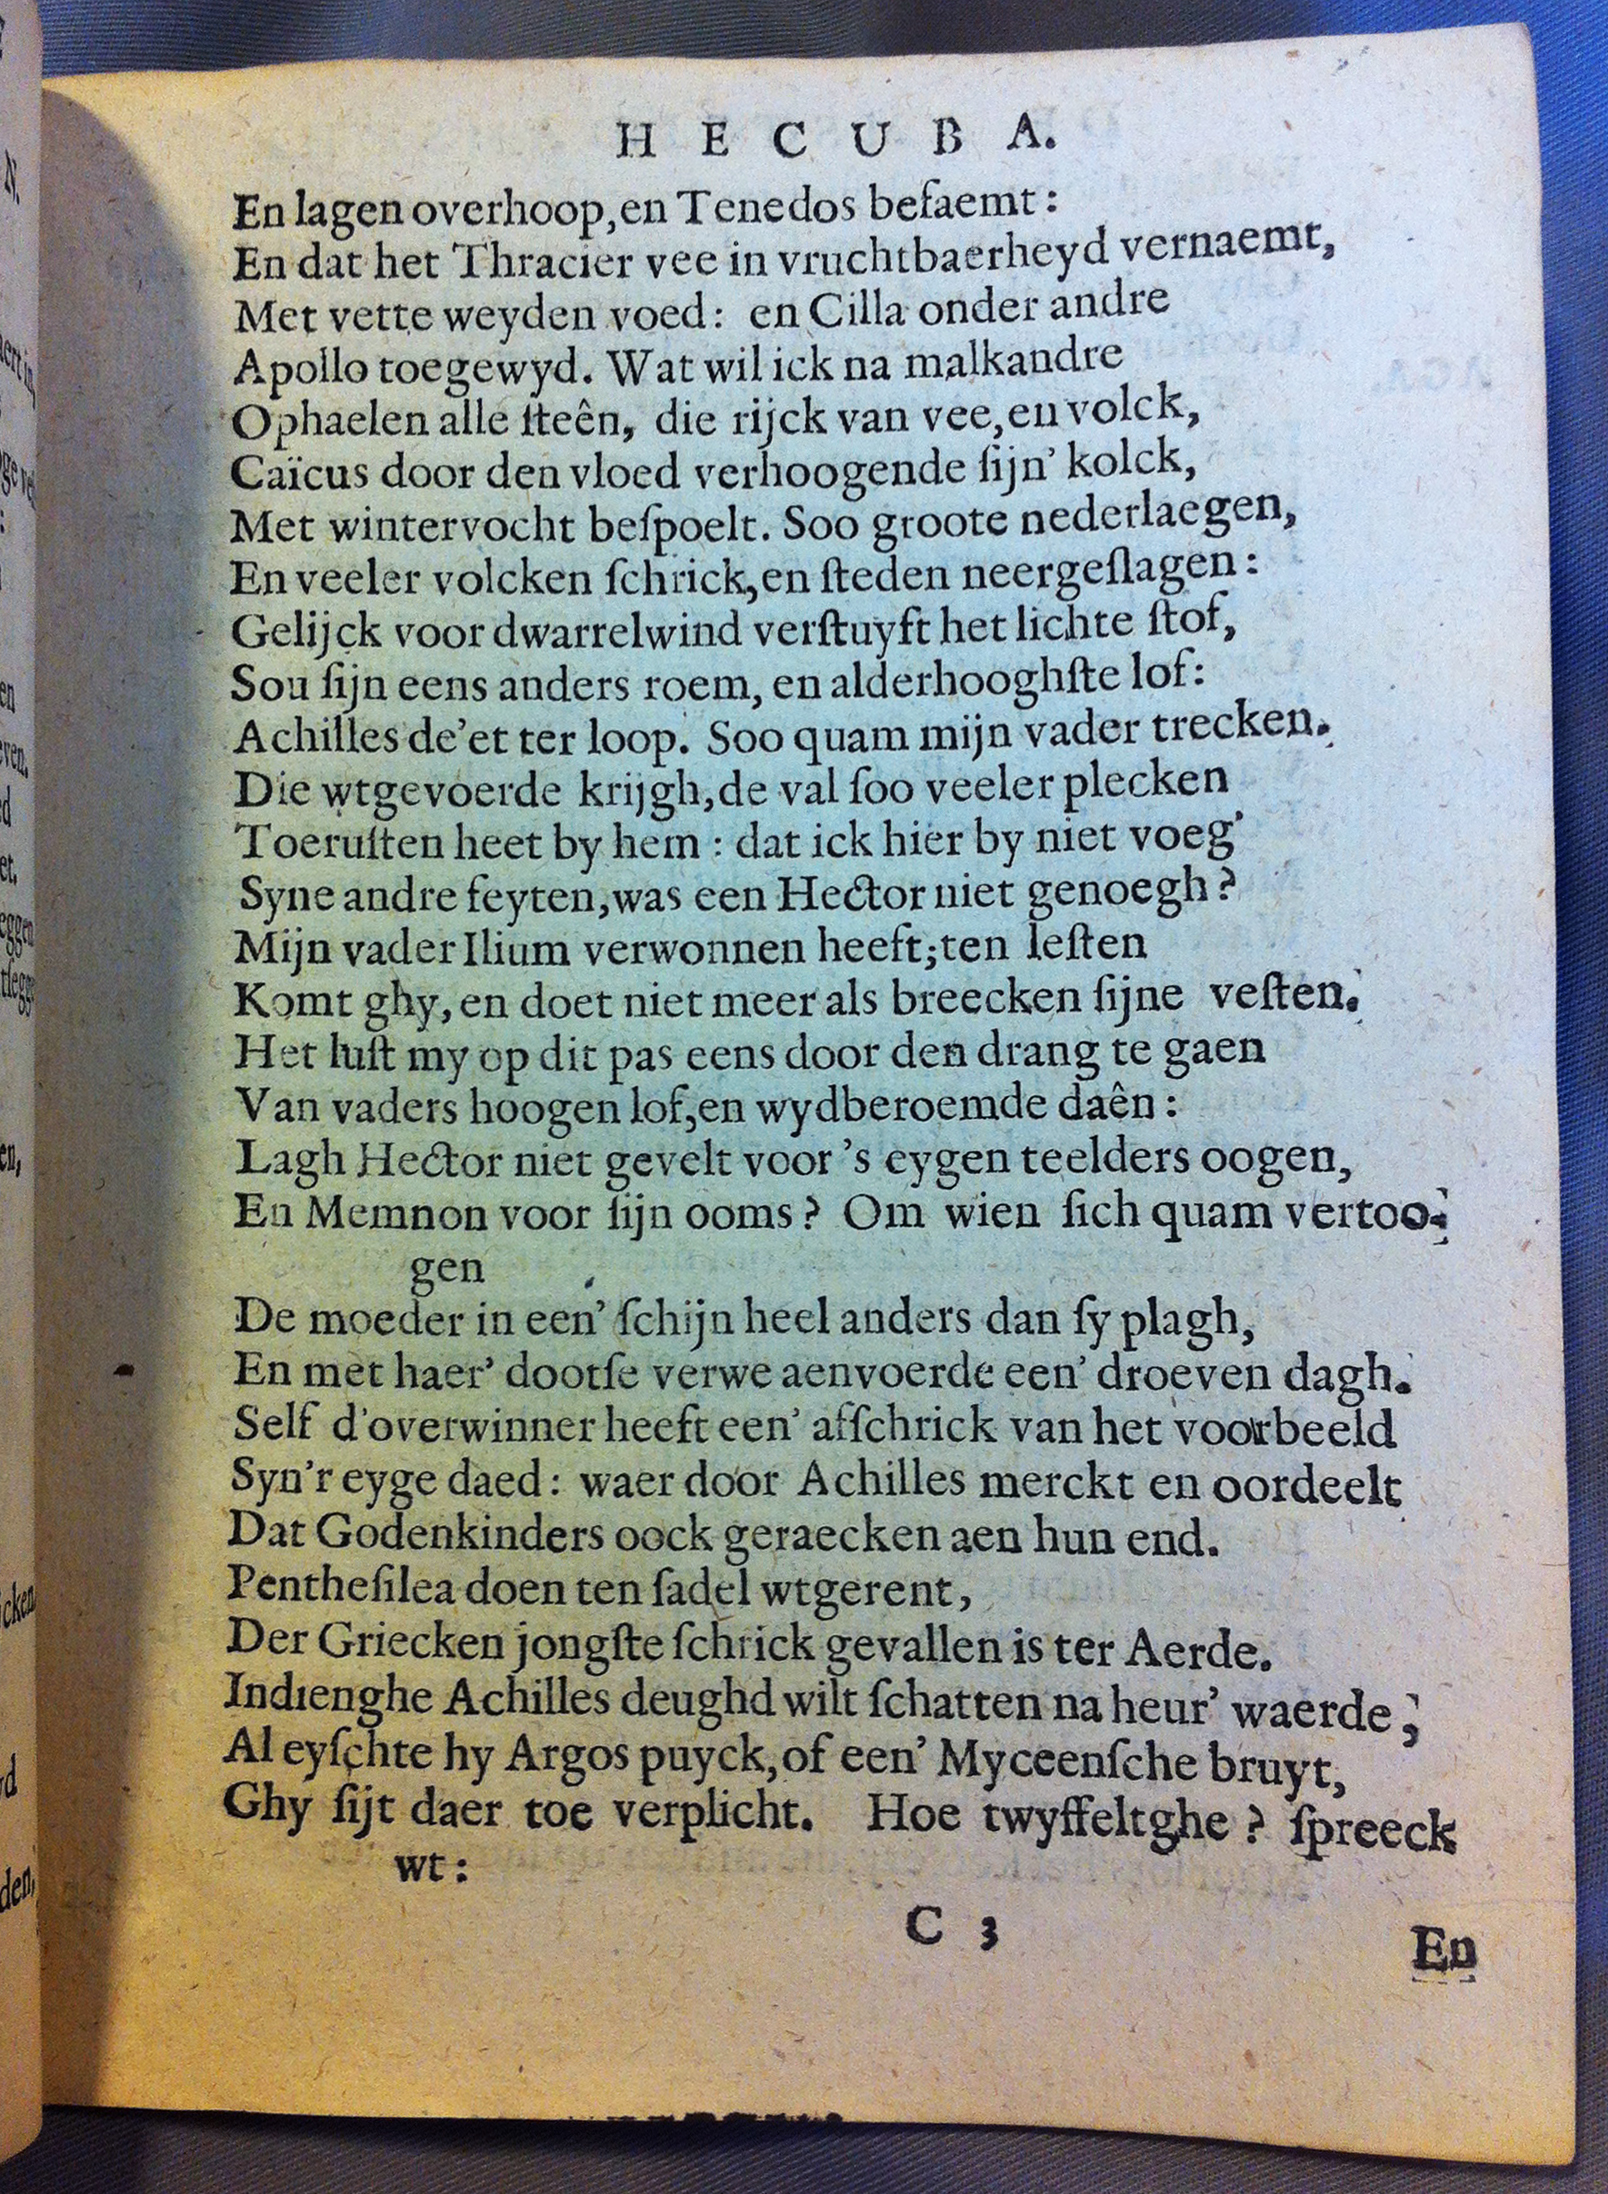 HECUBA.
En lagen overhoop, en Tenedos befaemt:
En dat het Thracier vee in vruchtbaerheyd vernaemt,
Met vette weyden voed: en Cilla onder andre
Apollo toegewyd. Wat wil ick na malkandre
Ophaelen alle ſteên, die rijck van vee, en volck,
Caïcus door den vloed verhoogende ſijn' kolck,
Met wintervocht beſpoelt. Soo groote nederlaegen,
En veeler volcken ſchrick, en ſteden neergeſlagen:
Gelijck voor dwarrelwind verſtuyft het lichte ſtof,
Sou ſijn eens anders roem, en alderhooghſte lof:
Achilles de'et ter loop. Soo quam mijn vader trecken.
Die wtgevoerde krijgh, de val ſoo veeler plecken
Toeruſten heet by hem: dat ick hier by niet voeg'
Syne andre feyten, was een Hector niet genoegh?
Mijn vader Ilium verwonnen heeft; ten leſten
Komt ghy, en doet niet meer als breecken ſijne veſten.
Het luſt my op dit pas eens door den drang te gaen
Van vaders hoogen lof, en wydberoemde daên:
Lagh Hector niet gevelt voor 's eygen teelders oogen,
En Memnon voor ſijn ooms? Om wien ſich quam vertoo-
gen
De moeder in een' ſchijn heel anders dan ſy plagh,
En met haer' dootſe verwe aenvoerde een' droeven dagh.
Self d'overwinner heeft een' afſchrick van het voorbeeld
Syn'r eyge daed: waer door Achilles merckt en oordeelt
Dat Godenkinders oock geraecken aen hun end.
Pentheſilea doen ten ſadel wtgerent,
Der Griecken jongſte ſchrick gevallen is ter Aerde.
Indienghe Achilles deughd wilt ſchatten na heur' waerde,
Al eyſchte hy Argos puyck, of een' Myceenſche bruyt,
Ghy ſijt daer toe verplicht. Hoe twyffeltghe? ſpreeck
wt:
C 3
En